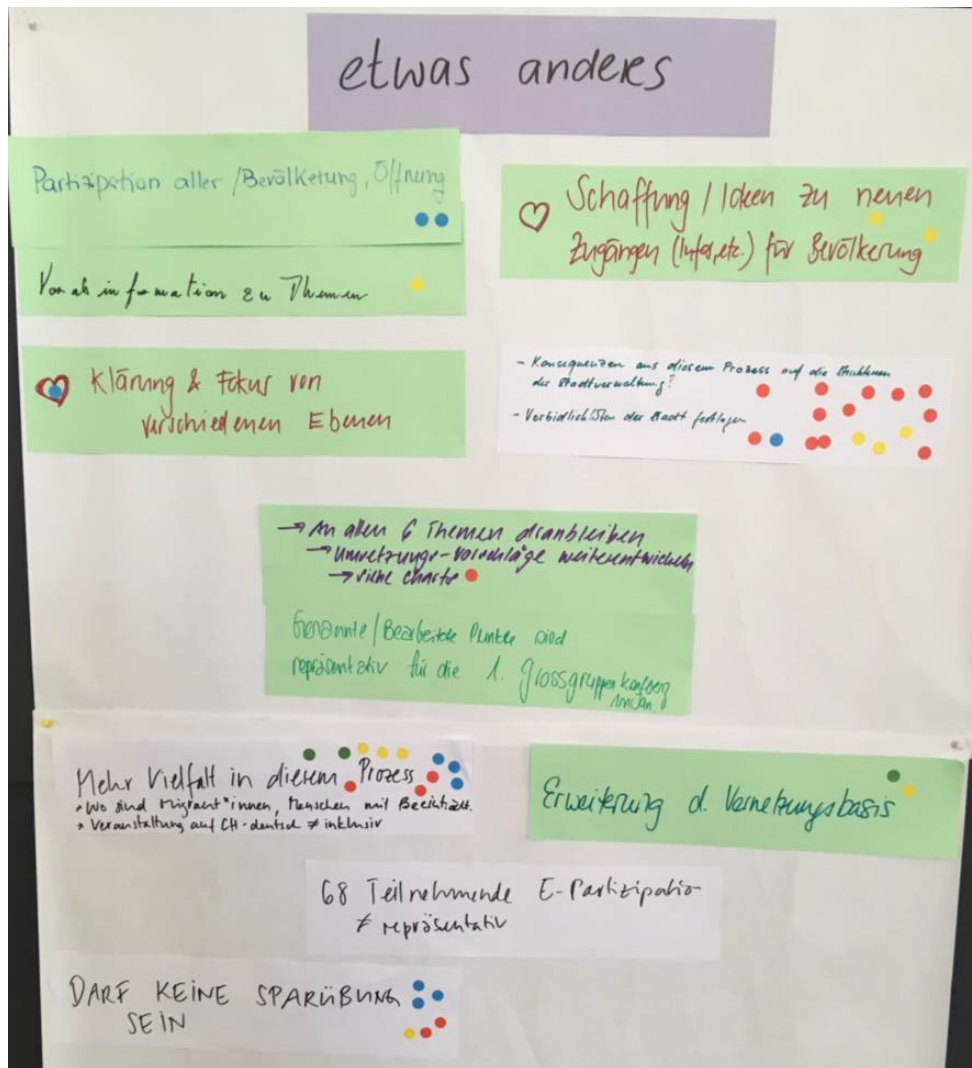 etwas anders
Partizipation aller / Bevölkerung, Öffnung
Vorabinformation zu Themen
Schaffung / Ideen zu neuen
Zugängen (Infos, etc.) für Bevölkerung
Klärung & Fokus von
verschiedenen Ebenen
- Konsequenzen aus diesem Prozess auf die Strukturen
der Stadtverwaltung?
- Verbindlichkeiten der Stadt festlegen
→ An allen 6 Themen dranbleiben
→ Umsetzungs-Vorschläge weiterentwickeln
→ siehe Charts
Genannte / Bearbeitete Punkte sind
repräsentativ für die 1. Grossgruppenkonferenz
Mehr Vielfalt in diesem Prozess
• Wo sind Migrant*innen, Menschen mit Beeinträcht.
• Veranstaltung auf CH-deutsch ≠ inklusiv
Erweiterung d. Vernetzungsbasis
68 Teilnehmende E-Partizipation
≠ repräsentativ
DARF KEINE SPARÜBUNG
SEIN